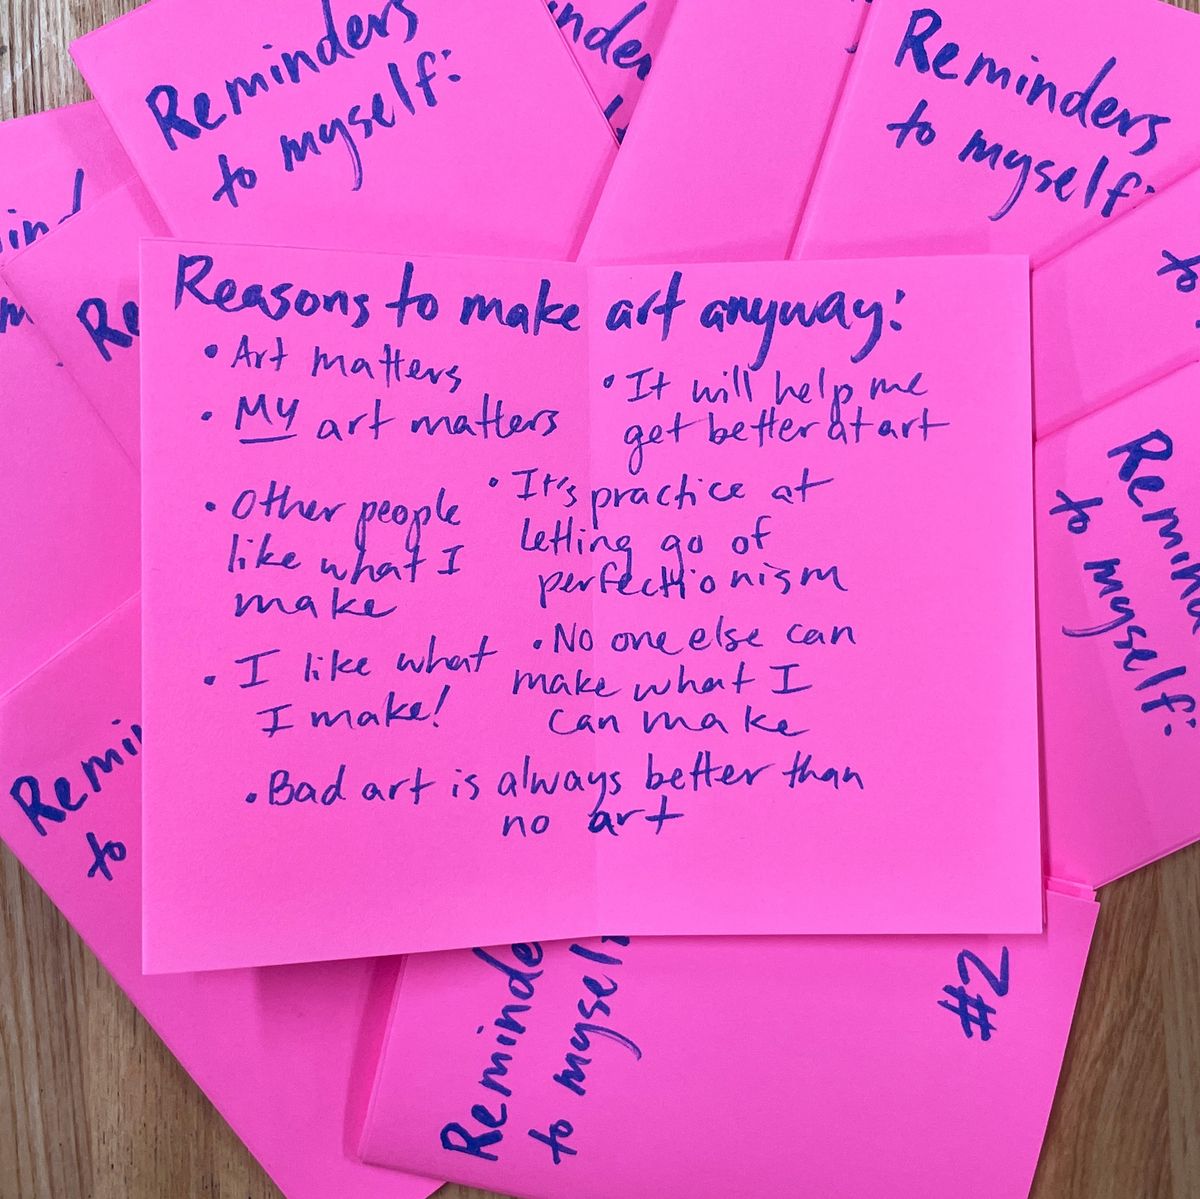 Reminders
to myself:
Reminders
to myself:
to
Reasons to make art anyway:
• Art matters
• MY art matters
• Other people
like what I
make
• I like what
I make!
• It will help me
get better at art
• It's practice at
letting go of
perfectionism
• No one else can
make what I
can make
• Bad art is always better than
no art
to myself:
to
#2